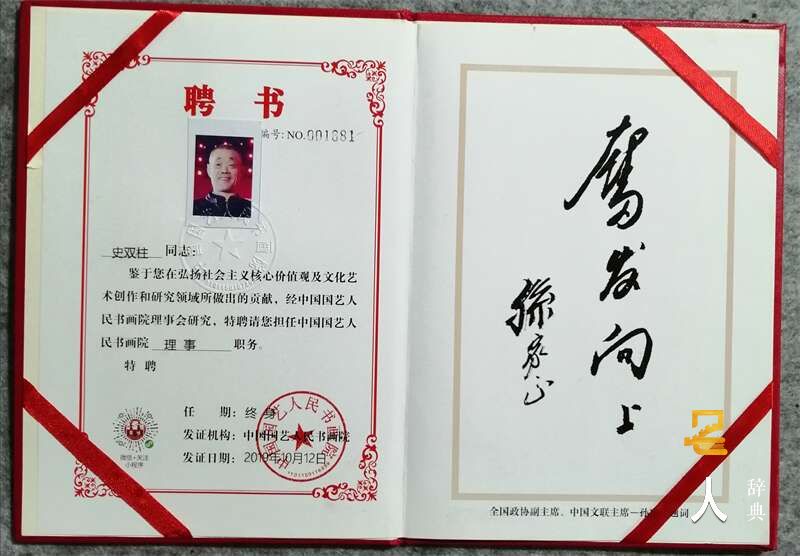 聘书
编号:NO.001081
史双柱 同志:
鉴于您在弘扬社会主义核心价值观及文化艺
术创作和研究领域所做出的贡献，经中国国艺人
民书画院理事会研究，特聘请您担任中国国艺人
民书画院 理事 职务。
特聘
任 期: 终身
发证机构: 中国国艺人民书画院
发证日期: 2019年10月12日
微信•关注
小程序
中国国艺人民书画院
奮发向上
孫家正
全国政协副主席、中国文联主席－孙 题词
名人
辞典